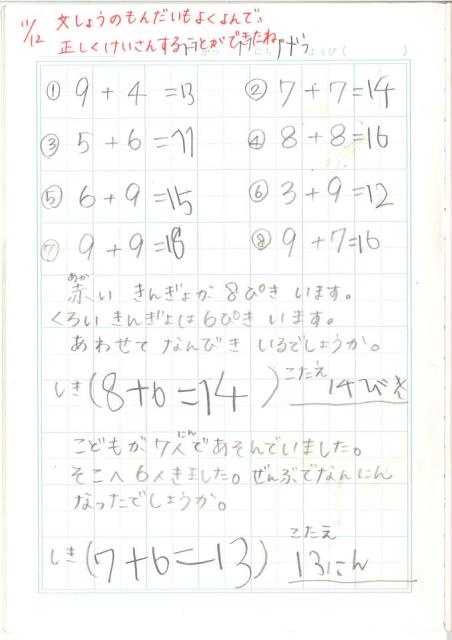 11/12 文しょうのもんだいもよくよんで、
正しくけいさんすることができたね。
① 9+4=13 ② 7+7=14
③ 5+6=11 ④ 8+8=16
⑤ 6+9=15 ⑥ 3+9=12
⑦ 9+9=18 ⑧ 9+7=16
あか
赤い きんぎょが 8ぴき います。
くろい きんぎょは 6ぴき います。
あわせて なんびき いるでしょうか。
しき(8+6=14) こたえ 14ひき
にん
こどもが 7人であそんでいました。
そこへ 6人きました。ぜんぶでなんにん
なったでしょうか。
しき(7+6=13) こたえ 13にん